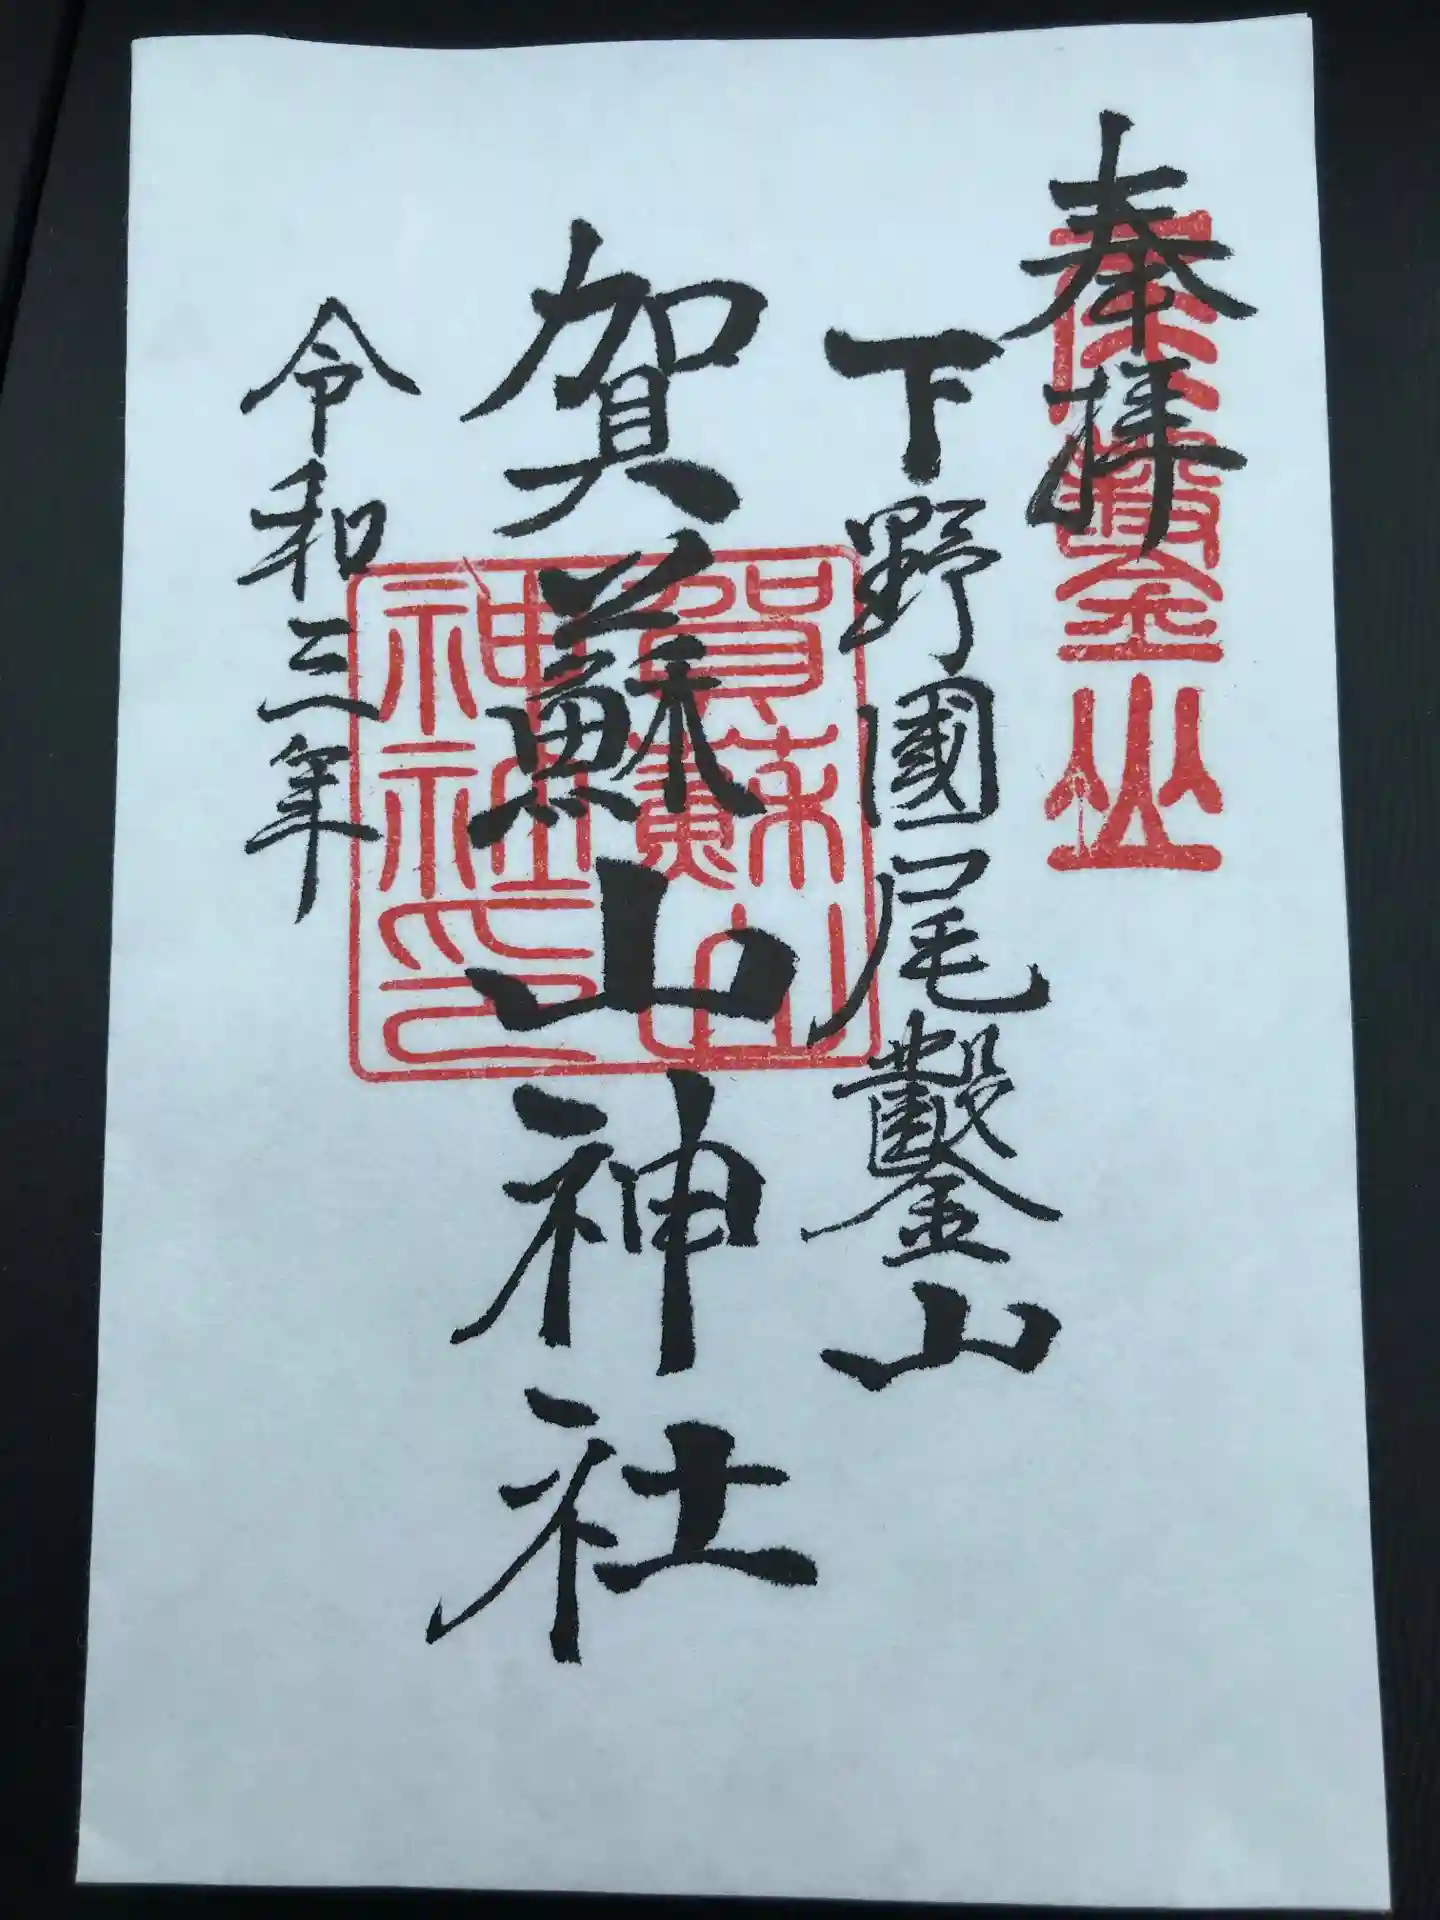 奉拝
尾鑿山
下野國尾鑿山
賀蘇山神社
賀蘇山
神社印
令和三年